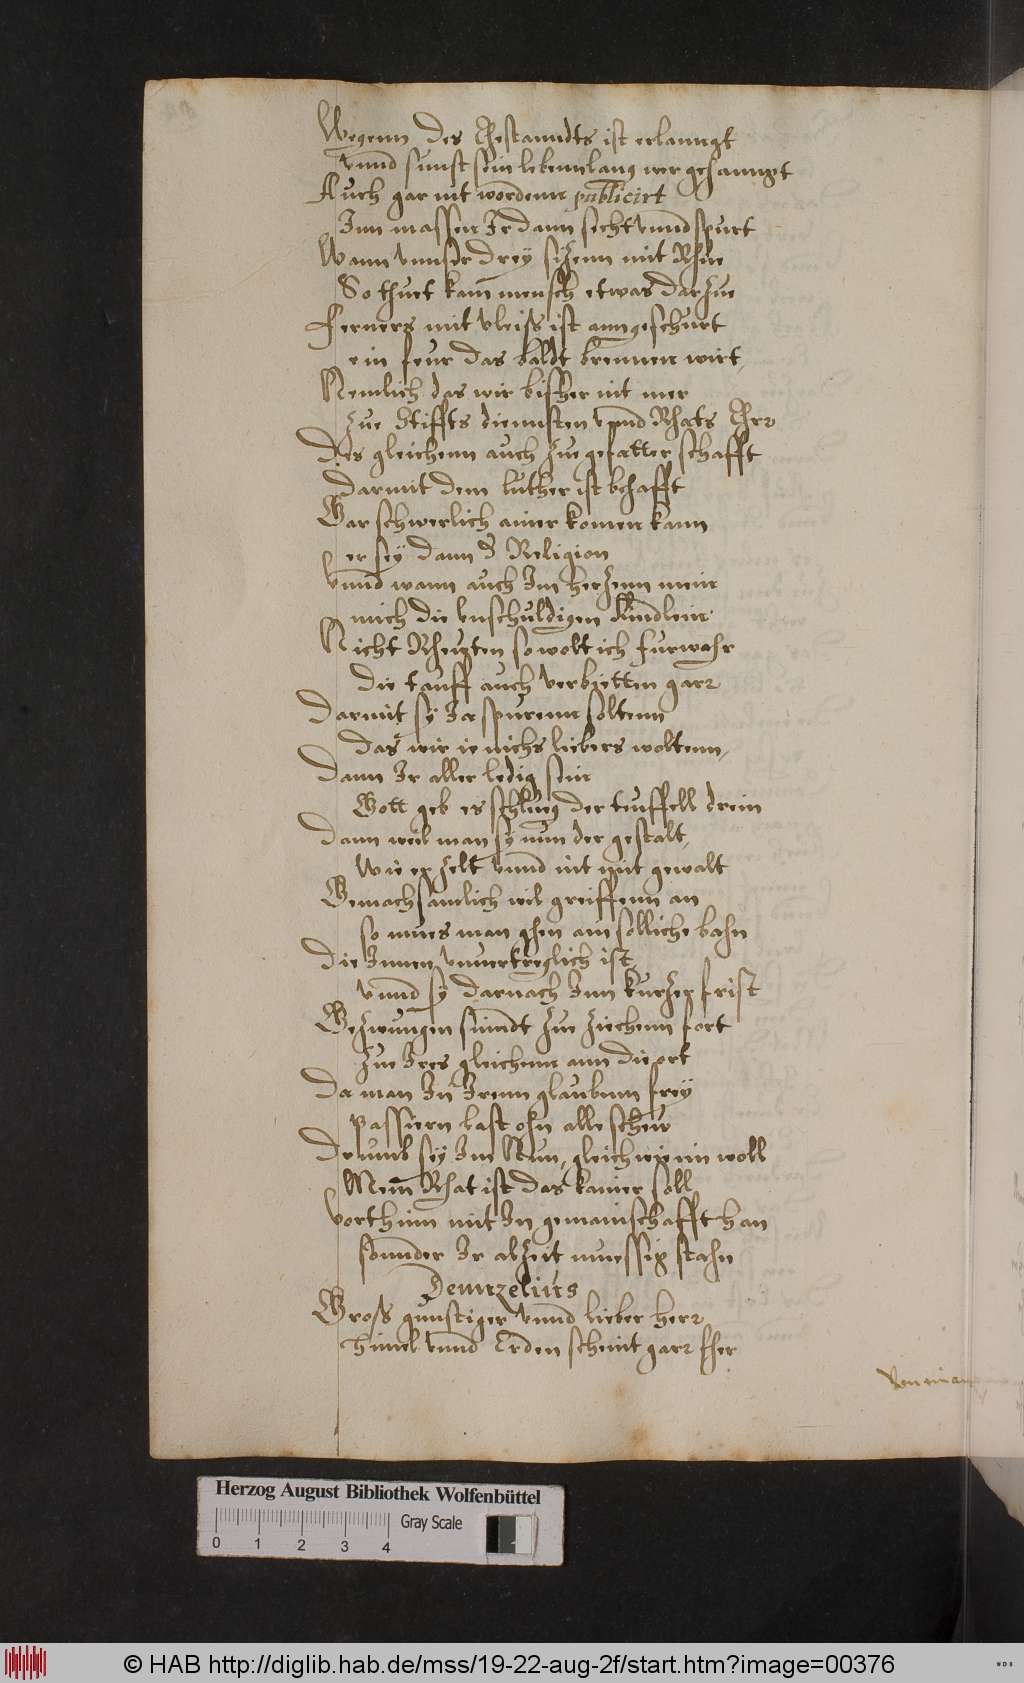 Wegenn des Ehestanndts ist erlanngt
vnnd sunst sein lebennlang wer gehanngt
Auch gar nit wordenn publicirt
Inn massen Ir dann secht vnnd spurt
Wann vnnser drey sizenn mit Rhue
So thuet kain mensch etwas darzue
Ferners mit vleiss ist anngeschurt
ein feur das baldt brennen wirt,
Nemlich das wir bisher nit mer
zue Stiffts diennsten vnnd Rhats Ehr
Des gleichenn auch zue gefatter schafft
darmit dem luther ist bhafft
Gar schwerlich ainer komen kann
er sey dann d Religion
vnnd wann auch Im herzenn mein
mich die vnschuldigen Kindlein
Nicht Rheuten so wolt ich furwahr
die tauff auch verbietten garr
Darmit sy Ja spurenn soltenn
das wir ie nichs liebers woltenn,
Dann Ir aller ledig sein
Gott geb es schlueg der teuffell drein
Dann weil man sy nun der gestalt,
Wie erzelt vnnd nit mit gewalt
Gemachsamlich wil greiffenn an
so mues man ghen ain solliche bahn
Die Innen vnuertreglich ist,
vnnd sy darnach Inn kurzer frist
Gezwungen sinndt zue ziehenn fort
zue Ires gleichenn ann die ort
Da man In Irenn glaubenn frey
Passiern last ohn alle scheu
Drumb sey Im Nun, gleich wie im woll
Mein Rhat ist das kainer soll
vorthinn mit In gemainschafft han
sonnder Ir alzeit muessig stahn
Demzelius
Gross gunstiger vnnd lieber herr
himel vnnd Erden scheint garr sher
Herzog August Bibliothek Wolfenbüttel
Gray Scale
0 1 2 3 4
© HAB http://diglib.hab.de/mss/19-22-aug-2f/start.htm?image=00376